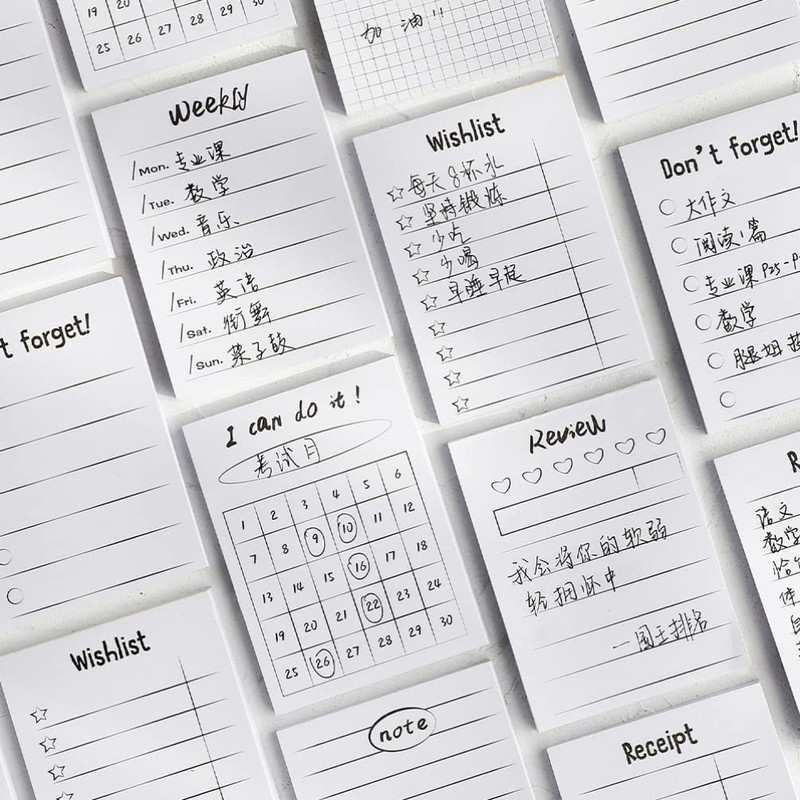 19 20
25 26 27 28 29 30
加油!!
Weekly
/Mon. 专业课
/Tue. 数学
/Wed. 音乐
/Thu. 政治
/Fri. 英语
/Sat. 街舞
/Sun. 架子鼓
Wishlist
每天8杯水
坚持锻炼
少吃
少喝
早睡早起
Don't forget!
大作文
阅读1篇
专业课 P25-P
数学
腿姐
t forget!
I can do it!
考试月
1 2 3 4 5 6
7 8 9 10 11 12
13 14 15 16 17 18
19 20 21 22 23 24
25 26 27 28 29 30
Review
我会将你的软弱
轻拥怀中
R
语文
数学
Wishlist
note
Receipt